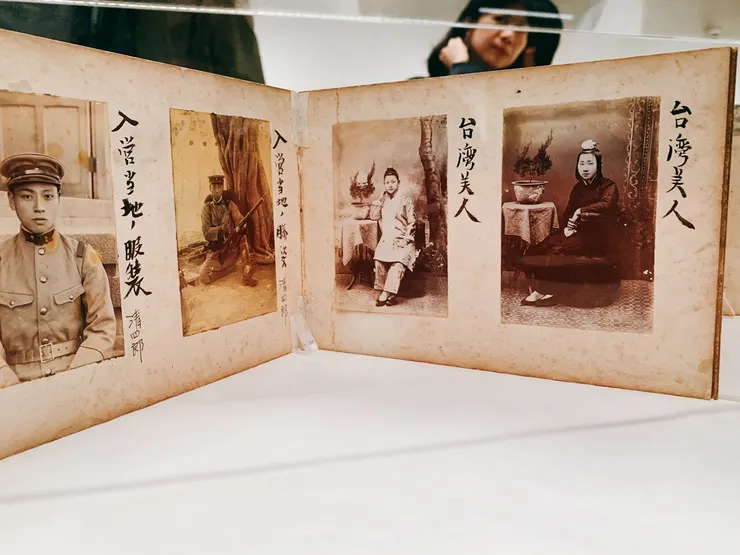 入営当地ノ服装
清四郎
入営当地ノ服装
清四郎
台灣美人
台灣美人